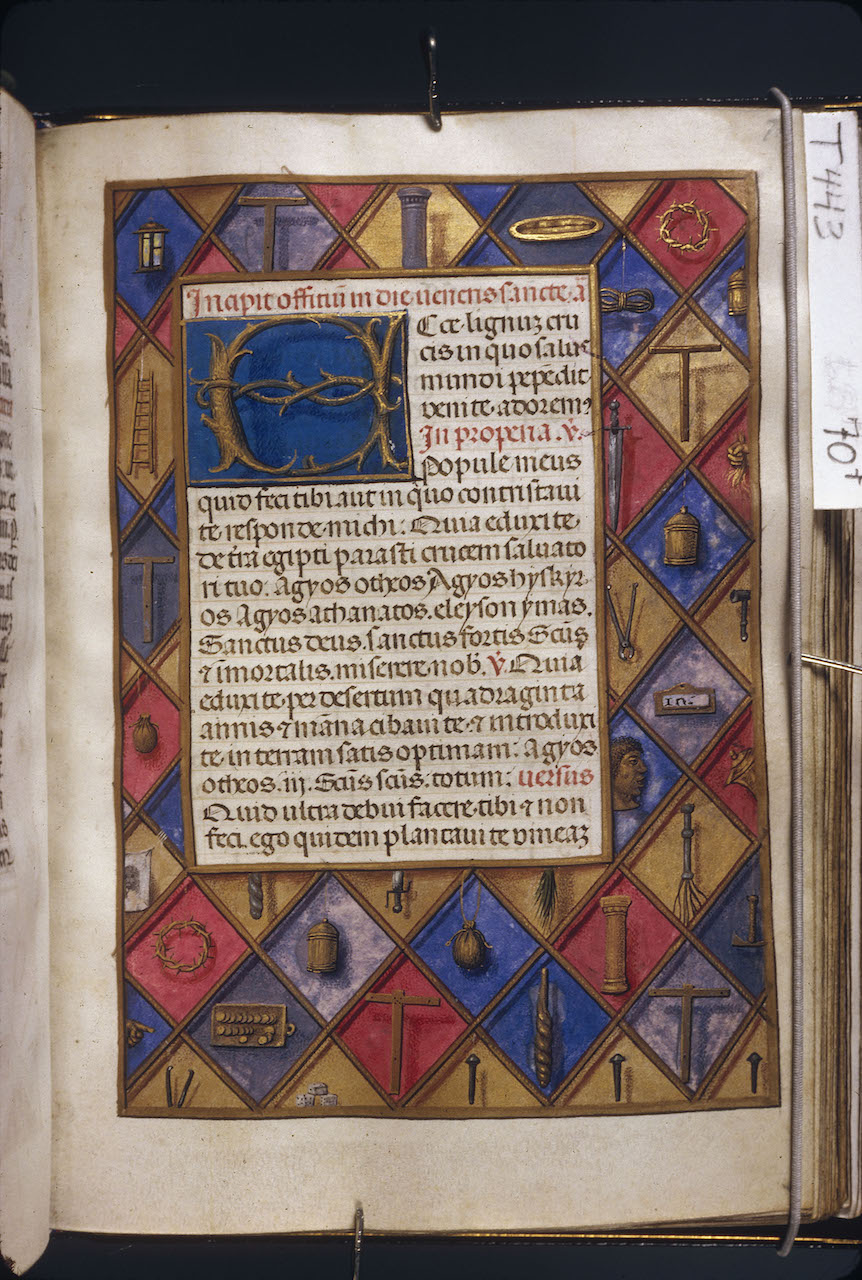 Incipit offitiū in die veneris sancte. ā
Ecce. lignuꝫ cru
cis in quo salus
mundi pepēdit
venite. adorem⁹
In properia. v̇.
Popule meus
quid feci tibi aut in quo contristaui
te responde michi: Quia eduxi te
de t̄ra egipti parasti crucem saluato
ri tuo: agyos otheos Agyos hyskyr
os Agyos athanatos. eleyson ymas.
Sanctus deus. sanctus fortis Sc̄us
⁊ īmortalis. miserere. nob̄. v̇ Quia
eduxi te. per desertum quadraginta
annis ⁊ māna cibaui te. ⁊ introduxi
te in terram satis optimam: Agyos
otheos. iij. Sc̄us sc̄us. totum: uersus
Quid ultra debui facere. tibi ⁊ non
feci. ego quidem plantaui te vineaꝫ
T443
70r